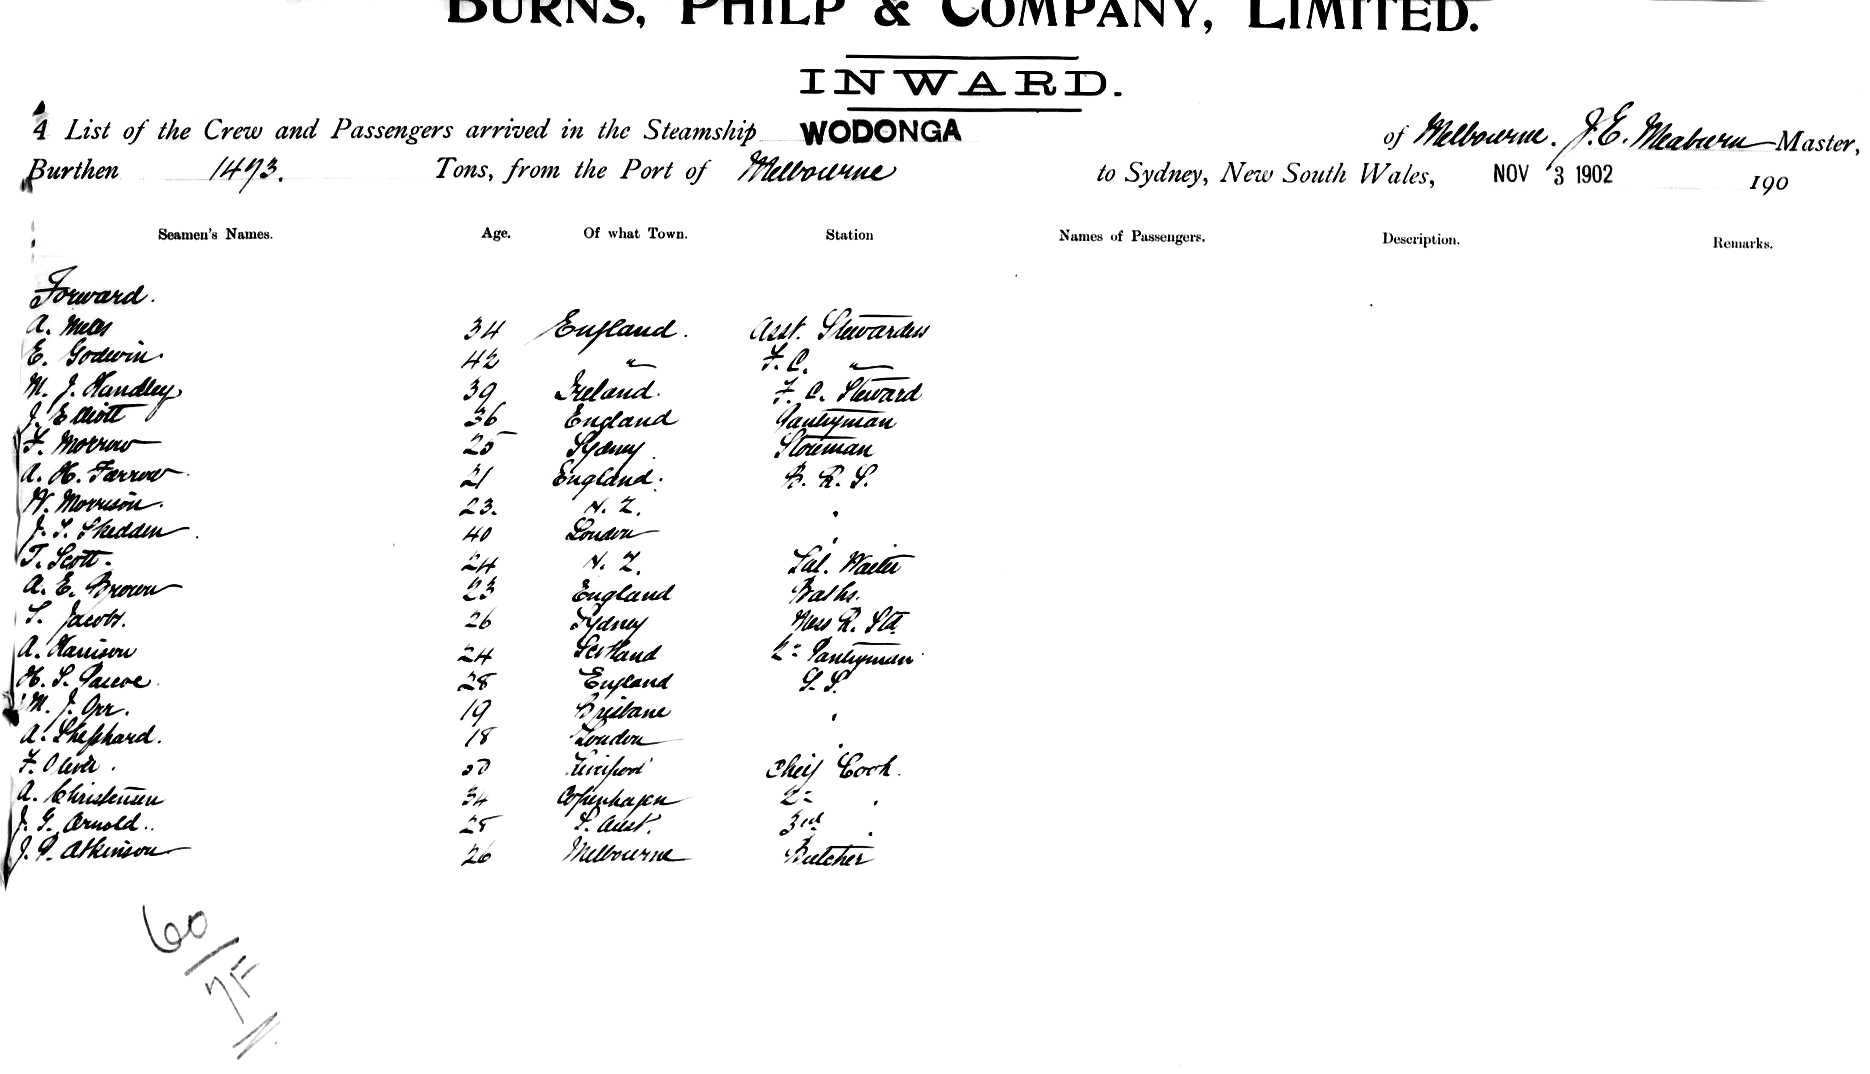 BURNS, PHILP & COMPANY, LIMITED.
INWARD.
A List of the Crew and Passengers arrived in the Steamship WODONGA of Melbourne. J. E. Meaburn Master,
Burthen 1493. Tons, from the Port of Melbourne to Sydney, New South Wales, NOV 3 1902 190
Seamen's Names. Age. Of what Town. Station Names of Passengers. Description. Remarks.
Forward.
A. 34 England. Asst. Stewardess
E. Godwin. 42 " F. C. "
M. J. Handley 39 Ireland. F. C. Steward
J. Elliott 36 England Pantryman
F. Morrow 25 Sydney. Storeman
A. H. Farrow 21 England. B. R. S.
W. Morrison. 23. N. Z. "
J. S. Shedden. 40 London "
T. Scott. 24 N. Z. Sal. Waiter
A. E. Brown 23 England Baths.
S. Jacobs. 26 Sydney Mess R. Std.
A. Harrison 24 Scotland 2nd Pantryman
H. S. Pascoe. 28 England G. S.
M. J. Orr. 19 Brisbane "
A. Shephard. 18 London "
F. Oliver. Liverpool Cheif Cook.
A. Christensen 34 Copenhagen 2nd "
J. G. Arnold.. 28 S. Aust. 3rd "
J. P. Atkinson 26 Melbourne Butcher
60
7F